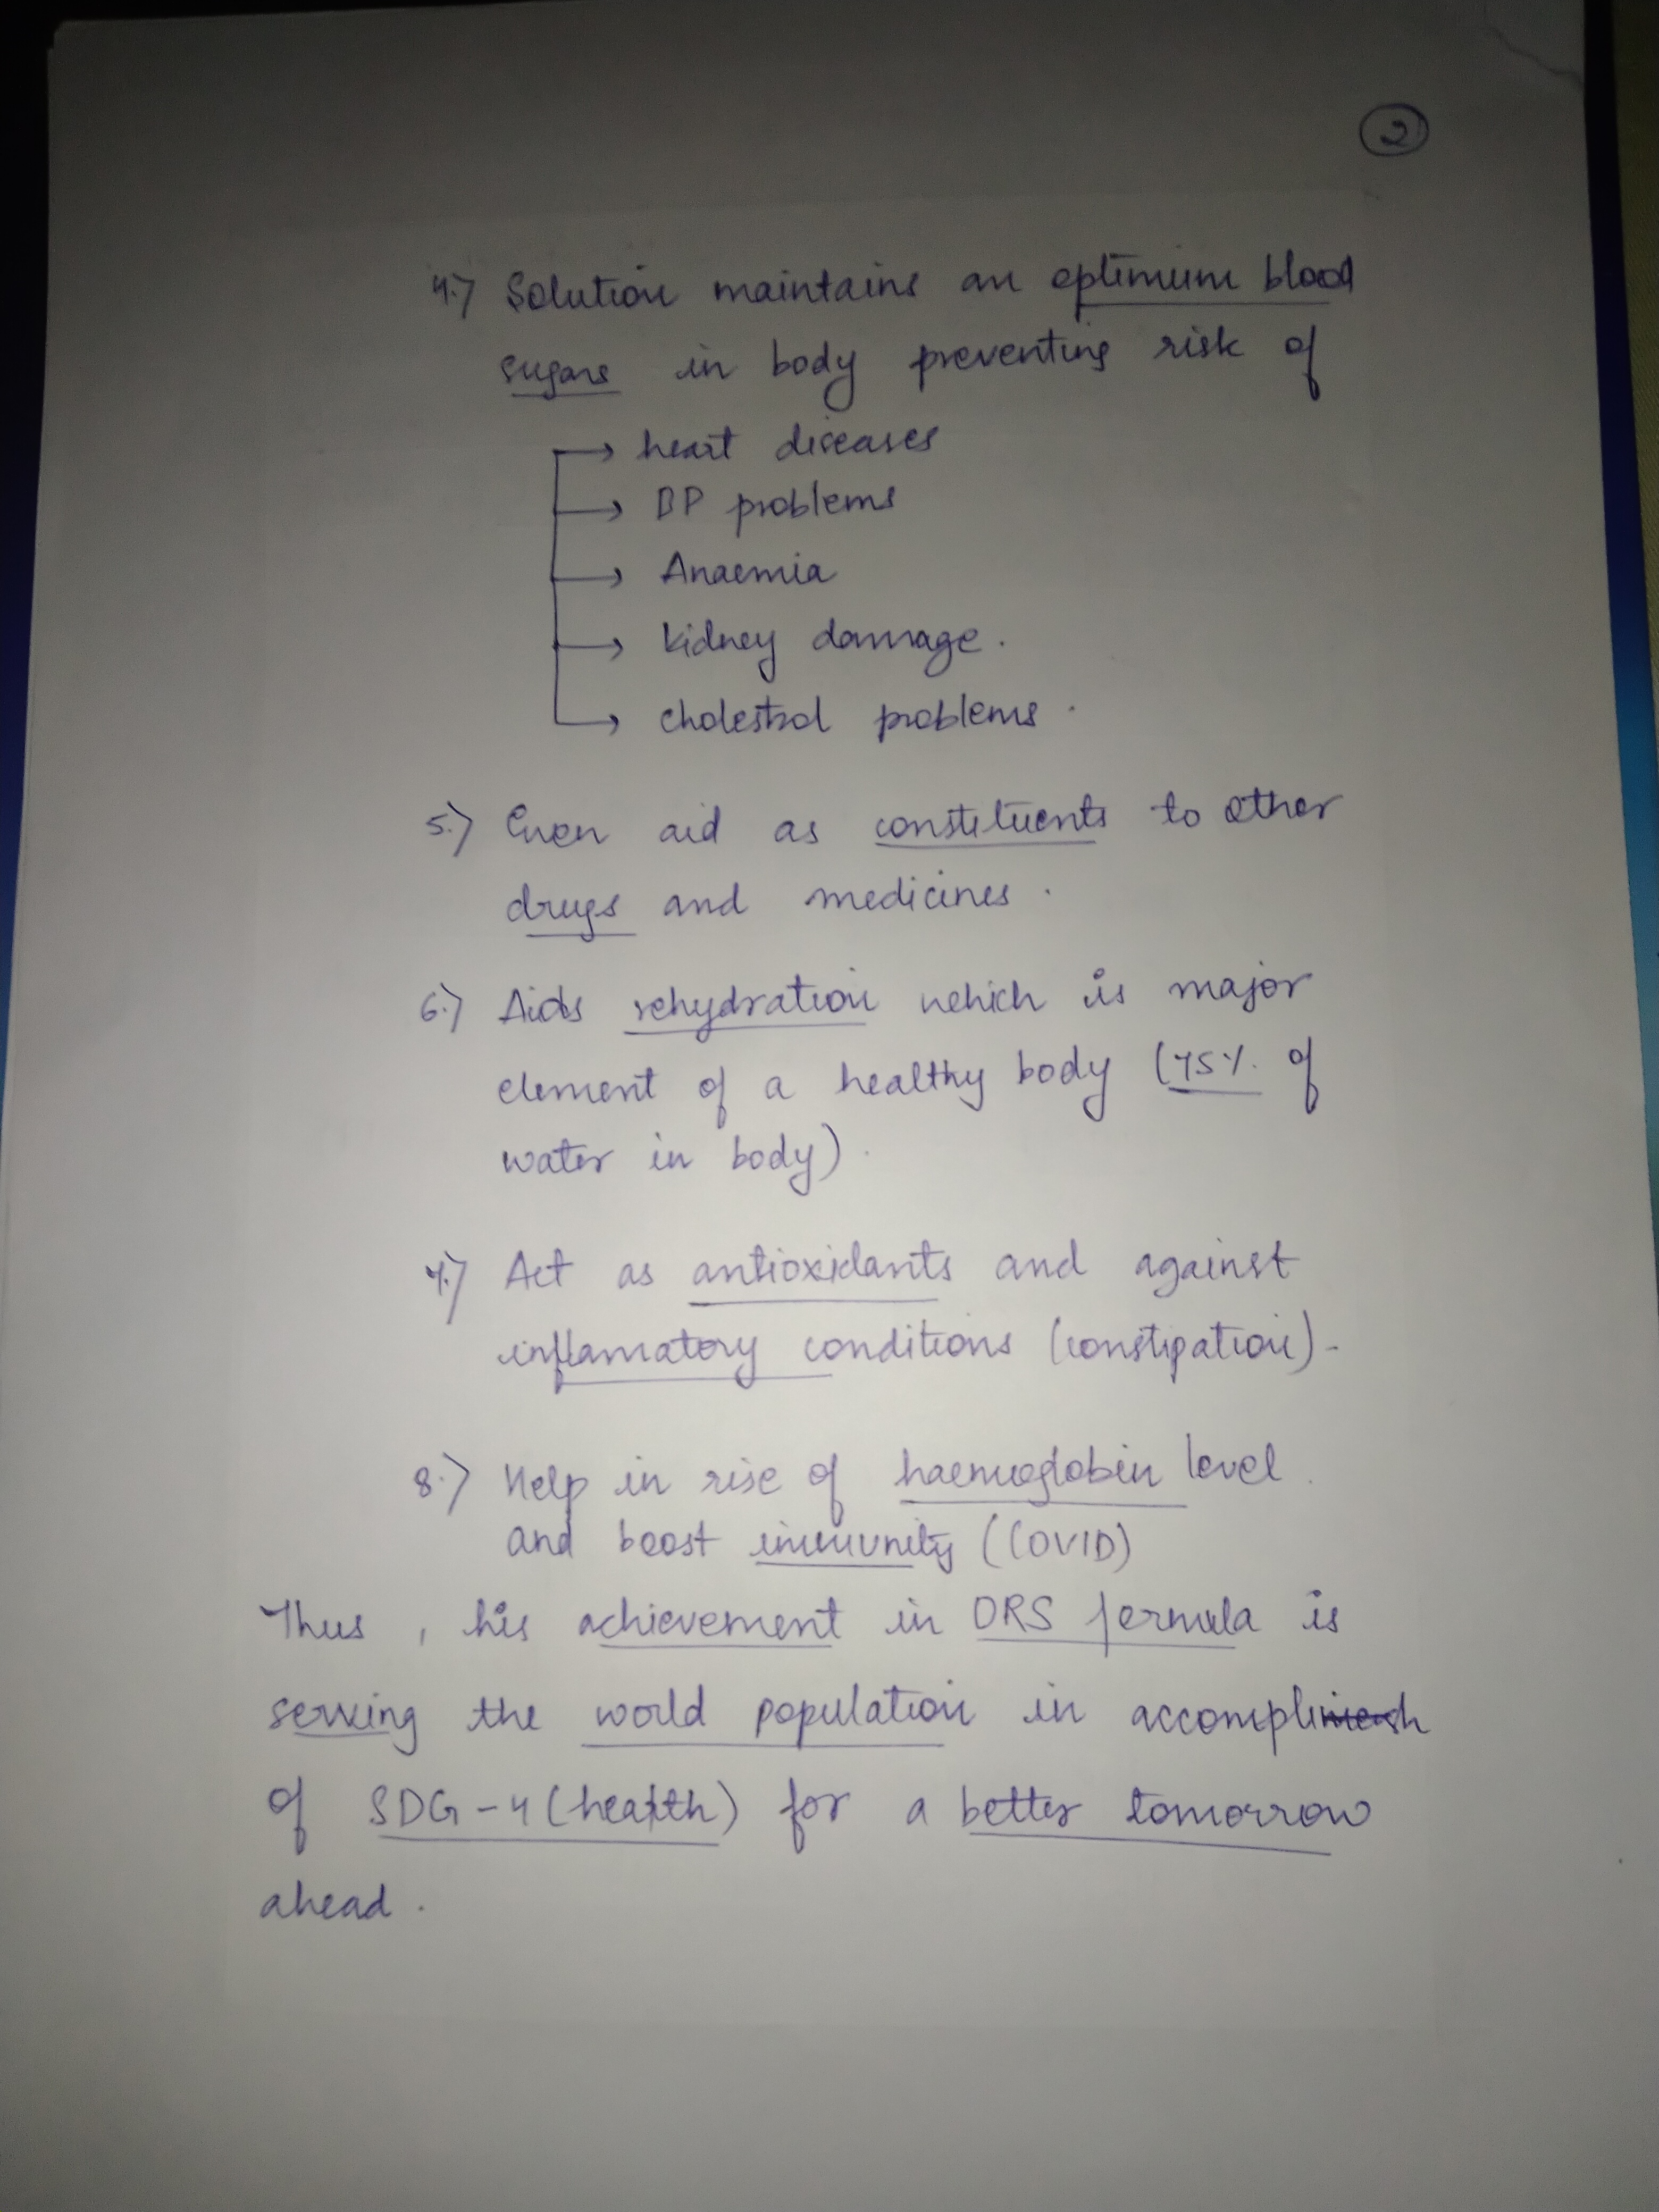 2
4.) Solution maintains an optimum blood
sugars in body preventing risk of
→ heart diseases
→ BP problems
→ Anaemia
→ kidney damage.
→ cholestrol problems.
5.) Even aid as constituents to other
drugs and medicines.
6.) Aids rehydration which is major
element of a healthy body (75% of
water in body).
7.) Act as antioxidants and against
inflamatory conditions (constipation).
8.) Help in rise of haemoglobin level
and boost immunity (COVID)
Thus, his achievement in ORS formula is
serving the world population in
of SDG-4 (health) for a better tomorrow
ahead.